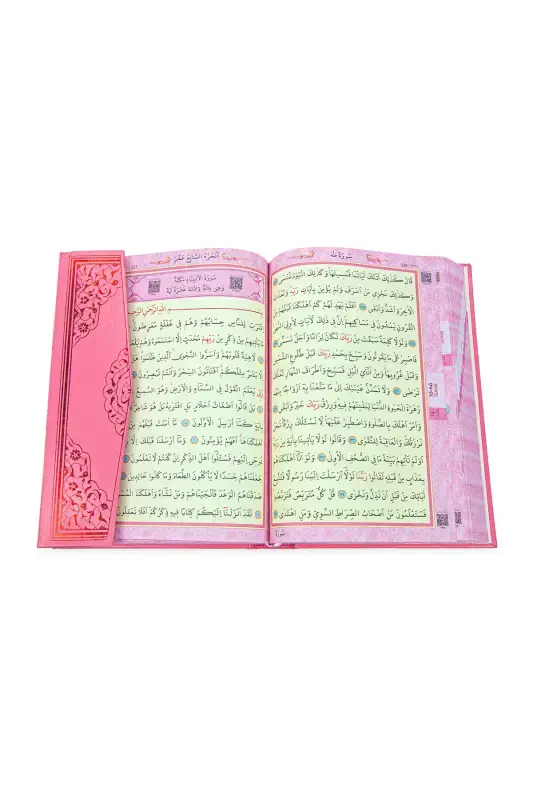 سُورَةُ طٰهٰ
قَالَ كَذٰلِكَ اَتَتْكَ اٰيَاتُنَا فَنَسِيتَهَا وَكَذٰلِكَ الْيَوْمَ تُنْسٰى
وَكَذٰلِكَ نَجْزِي مَنْ اَسْرَفَ وَلَمْ يُؤْمِنْ بِاٰيَاتِ رَبِّهِ وَلَعَذَابُ
الْاٰخِرَةِ اَشَدُّ وَاَبْقٰى اَفَلَمْ يَهْدِ لَهُمْ كَمْ اَهْلَكْنَا قَبْلَهُمْ مِنَ
الْقُرُونِ يَمْشُونَ فِي مَسَاكِنِهِمْ اِنَّ فِي ذٰلِكَ لَاٰيَاتٍ لِاُولِي النُّهٰى
وَلَوْلَا كَلِمَةٌ سَبَقَتْ مِنْ رَبِّكَ لَكَانَ لِزَامًا وَاَجَلٌ مُسَمًّى
فَاصْبِرْ عَلٰى مَا يَقُولُونَ وَسَبِّحْ بِحَمْدِ رَبِّكَ قَبْلَ طُلُوعِ الشَّمْسِ
وَقَبْلَ غُرُوبِهَا وَمِنْ اٰنَائِ الَّيْلِ فَسَبِّحْ وَاَطْرَافَ النَّهَارِ لَعَلَّكَ
تَرْضٰى وَلَا تَمُدَّنَّ عَيْنَيْكَ اِلٰى مَا مَتَّعْنَا بِهِ اَزْوَاجًا مِنْهُمْ
زَهْرَةَ الْحَيٰوةِ الدُّنْيَا لِنَفْتِنَهُمْ فِيهِ وَرِزْقُ رَبِّكَ خَيْرٌ وَاَبْقٰى
وَاْمُرْ اَهْلَكَ بِالصَّلٰوةِ وَاصْطَبِرْ عَلَيْهَا لَا نَسْـَٔلُكَ رِزْقًا نَحْنُ
نَرْزُقُكَ وَالْعَاقِبَةُ لِلتَّقْوٰى وَقَالُوا لَوْلَا يَاْتِينَا بِاٰيَةٍ مِنْ رَبِّهِ
اَوَلَمْ تَاْتِهِمْ بَيِّنَةُ مَا فِي الصُّحُفِ الْاُولٰى وَلَوْ اَنَّا اَهْلَكْنَاهُمْ
بِعَذَابٍ مِنْ قَبْلِهِ لَقَالُوا رَبَّنَا لَوْلَا اَرْسَلْتَ اِلَيْنَا رَسُولًا فَنَتَّبِعَ
اٰيَاتِكَ مِنْ قَبْلِ اَنْ نَذِلَّ وَنَخْزٰى قُلْ كُلٌّ مُتَرَبِّصٌ فَتَرَبَّصُوا
فَسَتَعْلَمُونَ مَنْ اَصْحَابُ الصِّرَاطِ السَّوِيِّ وَمَنِ اهْتَدٰى
اَلْجُزْءُ السَّابِعُ عَشَرَ
سُورَةُ الْاَنْبِيَاءِ مَكِّيَّةٌ
وَهِيَ مِائَةٌ وَاثْنَتَا عَشْرَةَ اٰيَةً
اللهِ الرَّحْمٰنِ الرَّحِيمِ
اِقْتَرَبَ لِلنَّاسِ حِسَابُهُمْ وَهُمْ فِي غَفْلَةٍ مُعْرِضُونَ
مَا يَاْتِيهِمْ مِنْ ذِكْرٍ مِنْ رَبِّهِمْ مُحْدَثٍ اِلَّا اسْتَمَعُوهُ وَهُمْ يَلْعَبُونَ
لَاهِيَةً قُلُوبُهُمْ وَاَسَرُّوا النَّجْوَى الَّذِينَ ظَلَمُوا هَلْ هٰذَا
اِلَّا بَشَرٌ مِثْلُكُمْ اَفَتَاْتُونَ السِّحْرَ وَاَنْتُمْ تُبْصِرُونَ
رَبِّي يَعْلَمُ الْقَوْلَ فِي السَّمَاءِ وَالْاَرْضِ وَهُوَ السَّمِيعُ
بَلْ قَالُوا اَضْغَاثُ اَحْلَامٍ بَلِ افْتَرٰيهُ بَلْ هُوَ شَاعِرٌ
بِاٰيَةٍ كَمَا اُرْسِلَ الْاَوَّلُونَ مَا اٰمَنَتْ قَبْلَهُمْ مِنْ
اَهْلَكْنَاهَا اَفَهُمْ يُؤْمِنُونَ وَمَا اَرْسَلْنَا قَبْلَكَ اِلَّا
نُوحِي اِلَيْهِمْ فَسْـَٔلُوا اَهْلَ الذِّكْرِ اِنْ كُنْتُمْ لَا تَعْلَمُونَ
جَعَلْنَاهُمْ جَسَدًا لَا يَاْكُلُونَ الطَّعَامَ وَمَا كَانُوا خَالِدِينَ
صَدَقْنَاهُمُ الْوَعْدَ فَاَنْجَيْنَاهُمْ وَمَنْ نَشَاءُ وَاَهْلَكْنَا الْمُسْرِفِينَ
لَقَدْ اَنْزَلْنَا اِلَيْكُمْ كِتَابًا فِيهِ ذِكْرُكُمْ اَفَلَا تَعْقِلُونَ